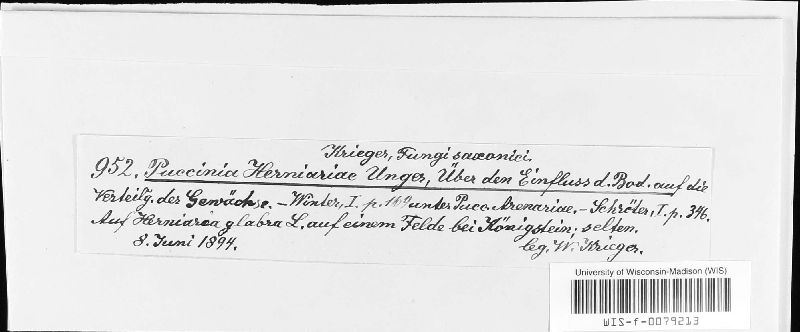 Krieger, Fungi saxonici.
952. Puccinia Herniariae Unger, Über den Einfluss d. Bod. auf die
Verteilg. der Gewächse. - Winter, I. p. 169 unter Pucc. Arenariae. - Schröter, I. p. 346.
Auf Herniaria glabra L. auf einem Felde bei Königstein; selten.
8. Juni 1894. leg. W. Krieger.
University of Wisconsin-Madison (WIS)
WIS-f-0079213